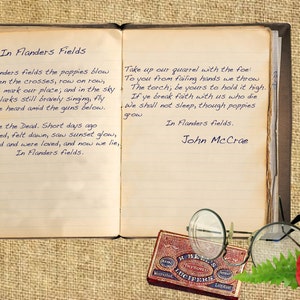 In Flanders Fields
nders fields the poppies blow
n the crosses, row on row,
mark our place; and in the sky
larks still bravely singing, fly
e heard amid the guns below.
e the Dead. Short days ago
ed, felt dawn, saw sunset glow,
d and were loved, and now we lie,
In Flanders fields.
Take up our quarrel with the foe:
To you from failing hands we throw
The torch; be yours to hold it high.
If ye break faith with us who die
We shall not sleep, though poppies
grow
In Flanders fields.
John McCrae
R. BELL'S
LUCIFERS
LONDON